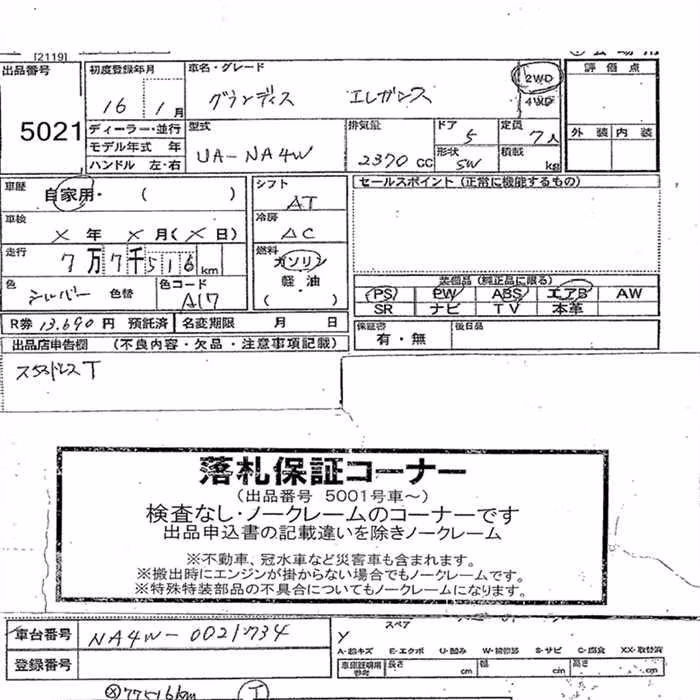 [2119]
出品番号
5021
初度登録年月
16 1月
ディーラー・並行
モデル年式 年
ハンドル 左・右
車名・グレード
グランディス エレガンス
2WD
4WD
型式
UA-NA4W
排気量
2370 CC
ドア
5
形状
SW
定員
7人
積載
kg
評価点
外装 内装
車歴
自家用・( )
車検
× 年 × 月(× 日)
走行
7万7千516km
色
シルバー 色替
色コード
A17
シフト
AT
冷房
AC
燃料
ガソリン
軽・油
( )
セールスポイント (正常に機能するもの)
装備品 (純正品に限る)
PS PW ABS エアB AW
SR ナビ TV 本革
R券 13,690円 預託済
名変期限 月 日
保証書
有・無
後日品
出品店申告欄 (不良内容・欠品・注意事項記載)
スタッドレスT
落札保証コーナー
(出品番号 5001号車~)
検査なし・ノークレームのコーナーです
出品申込書の記載違いを除きノークレーム
※不動車、冠水車など災害車も含まれます。
※搬出時にエンジンが掛からない場合でもノークレームです。
※特殊特装部品の不具合についてもノークレームになります。
車台番号
NA4W-0021734
登録番号
スペア
Y
A-線キズ E-エクボ U-凹み W-補修跡 S-サビ C-腐食 XX-取替済
車庫証明用参考
長さ cm
幅 cm
高さ cm
77516km